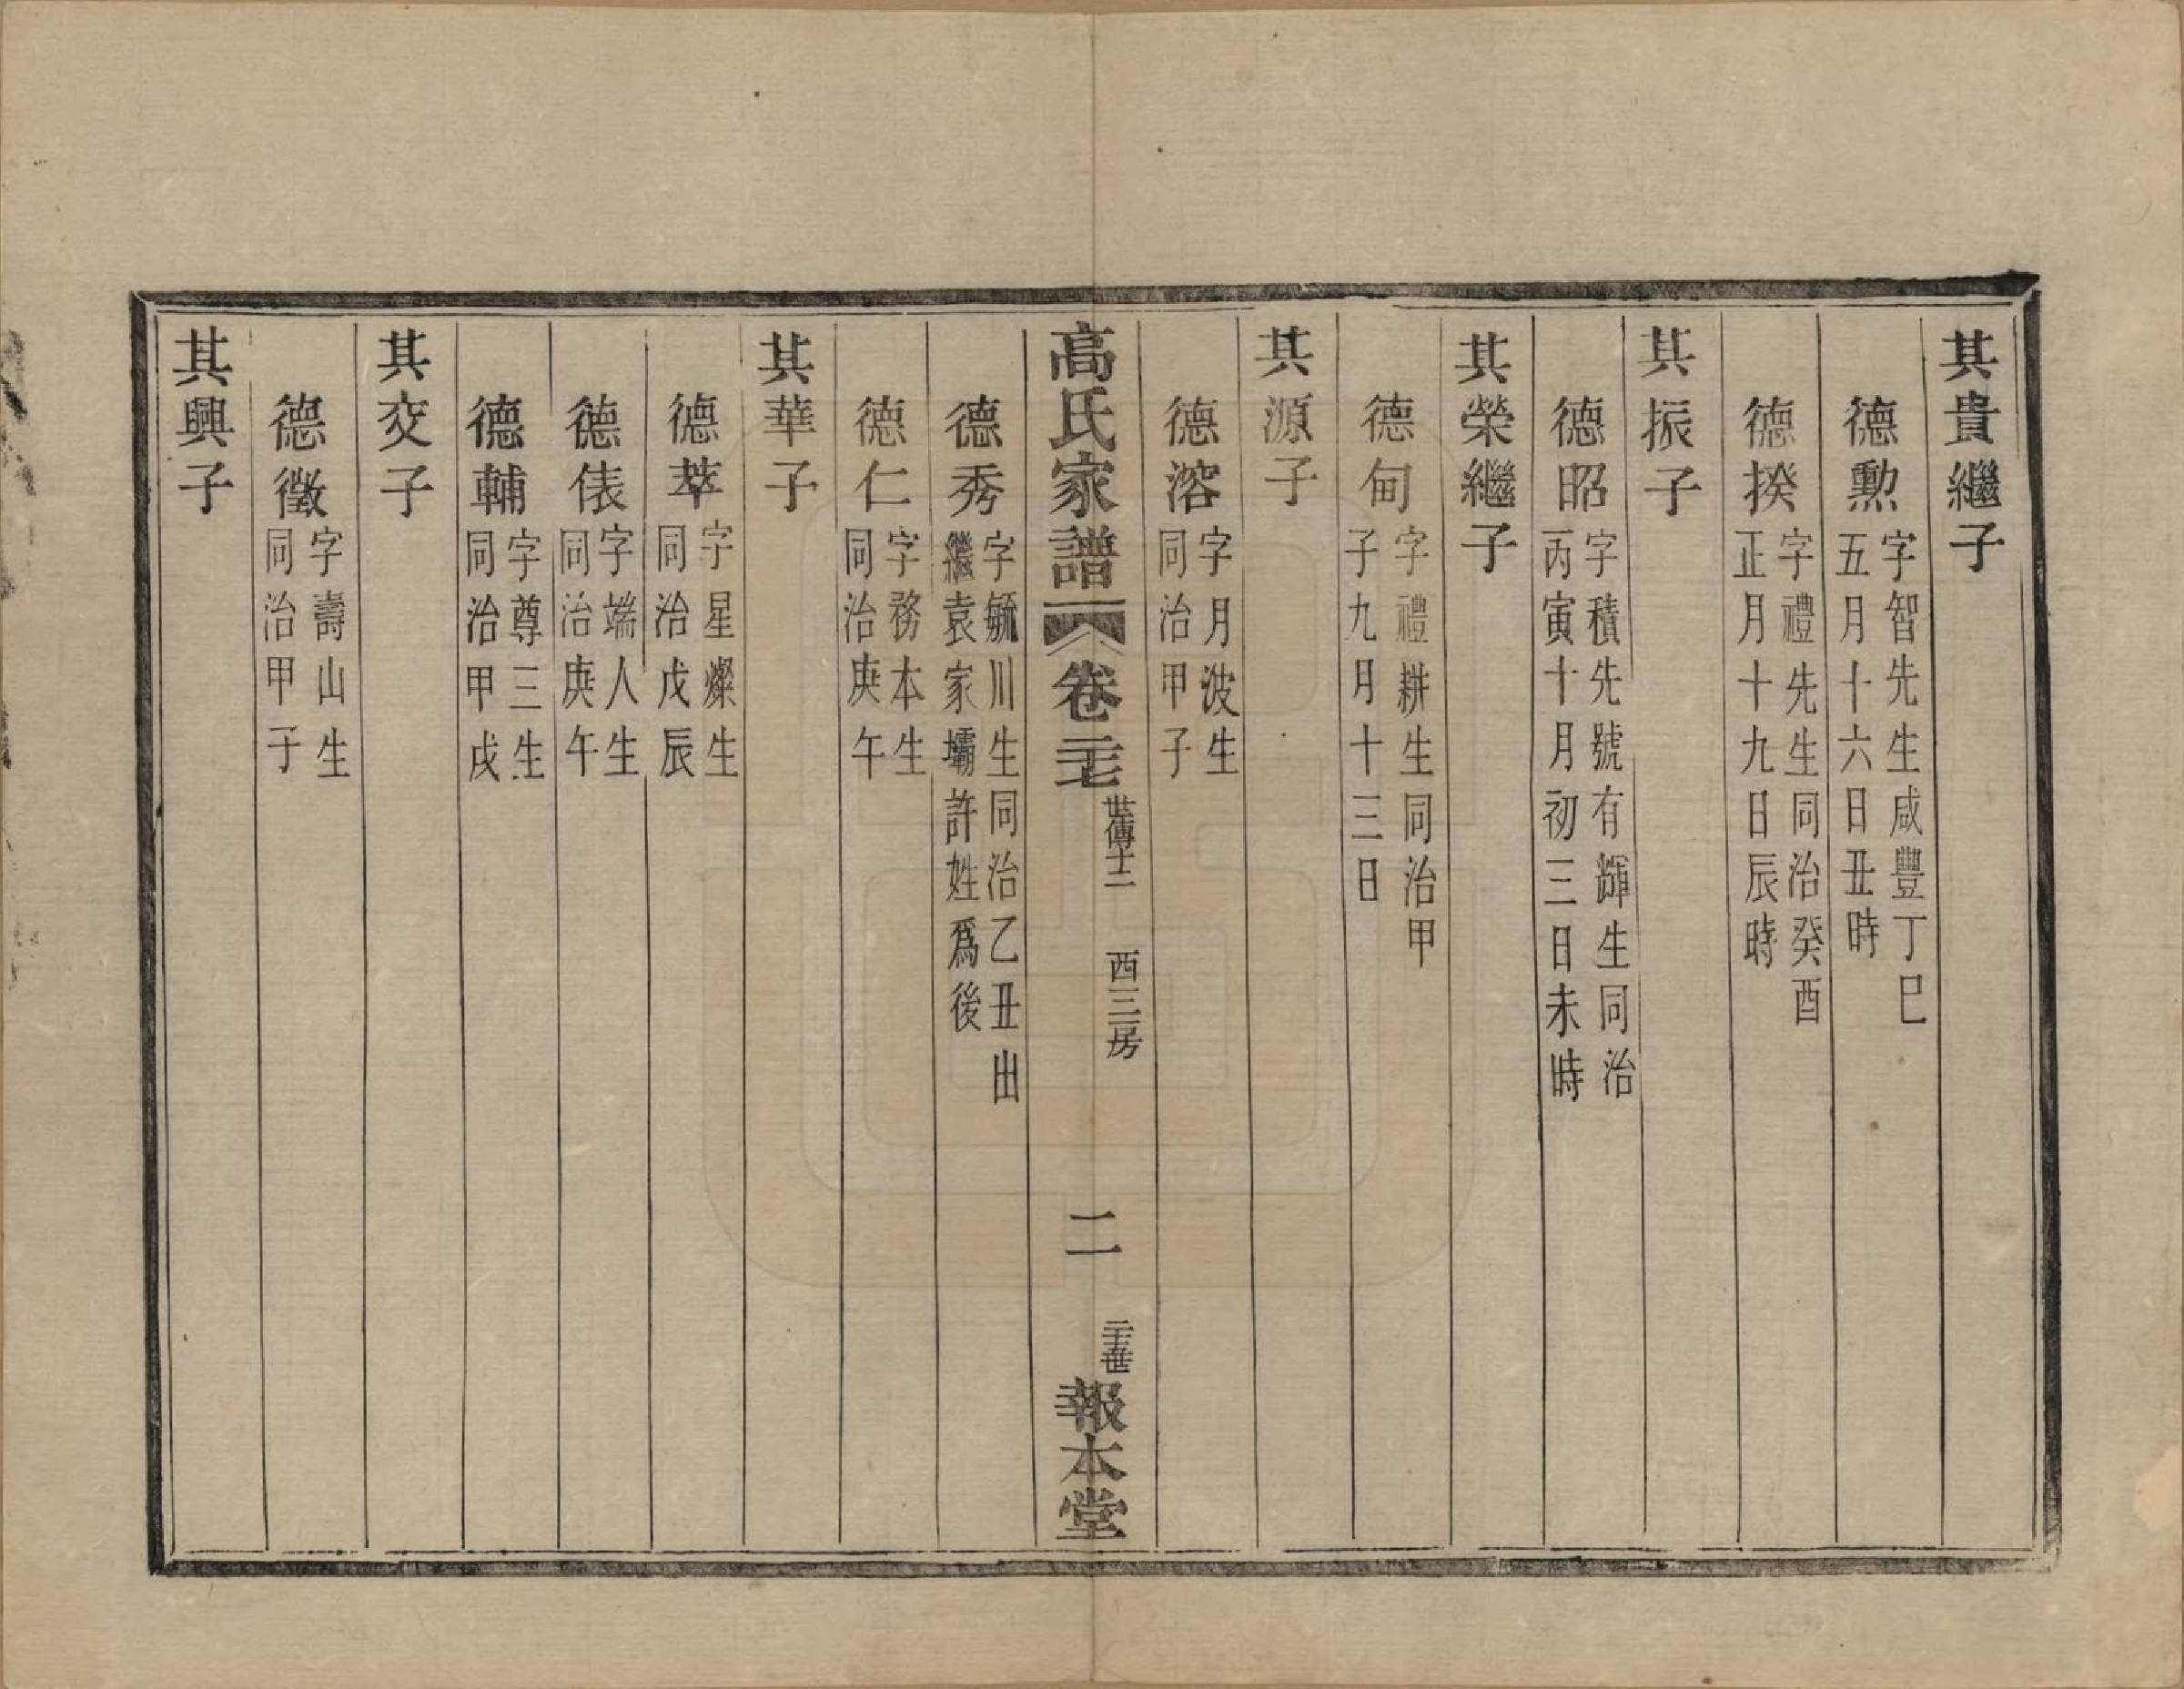 其貴繼子
德勲
字智先生咸豐丁巳
五月十六日丑時
德揆
字禮先生同治癸酉
正月十九日辰時
其振子
德昭
字積先號有輝生同治
丙寅十月初三日未時
其榮繼子
德甸
字禮耕生同治甲
子九月十三日
其源子
德溶
字月波生
同治甲子
高氏家譜
卷二十七
世傳十二
西三房
二
二十五世
報本堂
德秀
字毓川生同治乙丑出
繼袁家壩許姓爲後
德仁
字務本生
同治庚午
其華子
德萃
字星燦生
同治戊辰
德俵
字端人生
同治庚午
德輔
字尊三生
同治甲戌
其交子
德徵
字壽山生
同治甲子
其興子